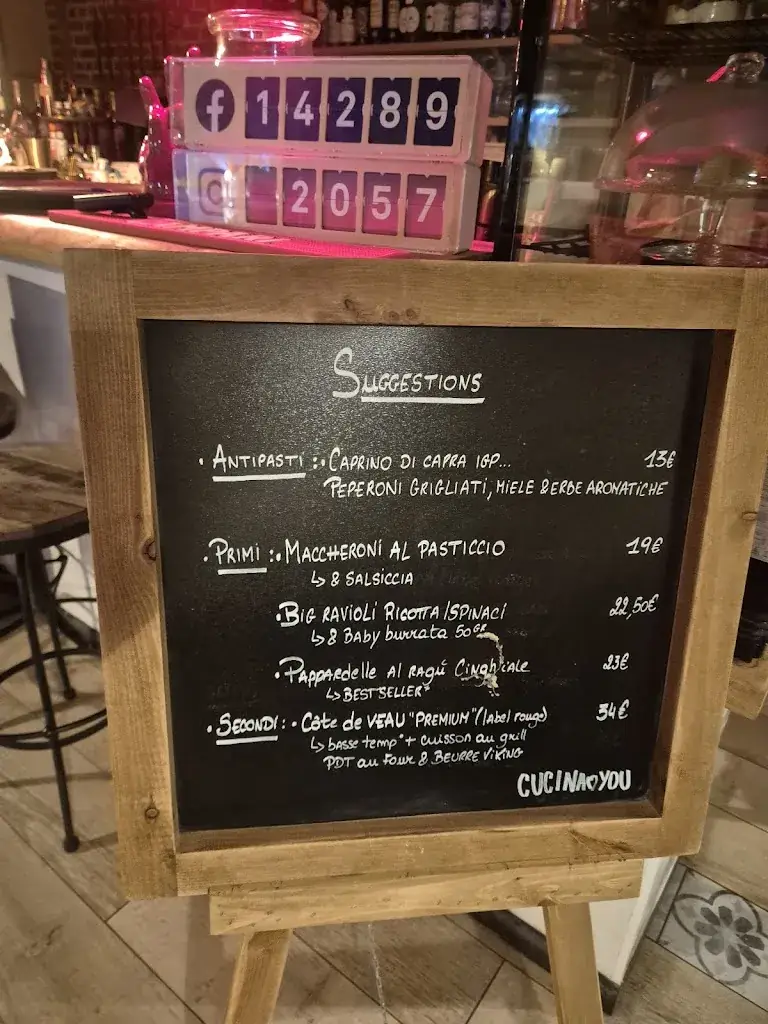 14289
2057
SUGGESTIONS
• ANTIPASTI : • CAPRINO DI CAPRA IGP... 13€
PEPERONI GRIGLIATI, MIELE & ERBE AROMATICHE
• PRIMI : • MACCHERONI AL PASTICCIO 19€
↳ & SALSICCIA
• BIG RAVIOLI RICOTTA/SPINACI 22,50€
↳ & Baby burrata 50GR
• PAPPARDELLE Al RAGÚ CINGHIALE 23€
↳ BESTSELLER*
• SECONDI : • Côte de VEAU "PREMIUM" (label rouge) 34€
↳ basse temp° + cuisson au grill
PDT au Four & BEURRE VIKING
CUCINA♥YOU